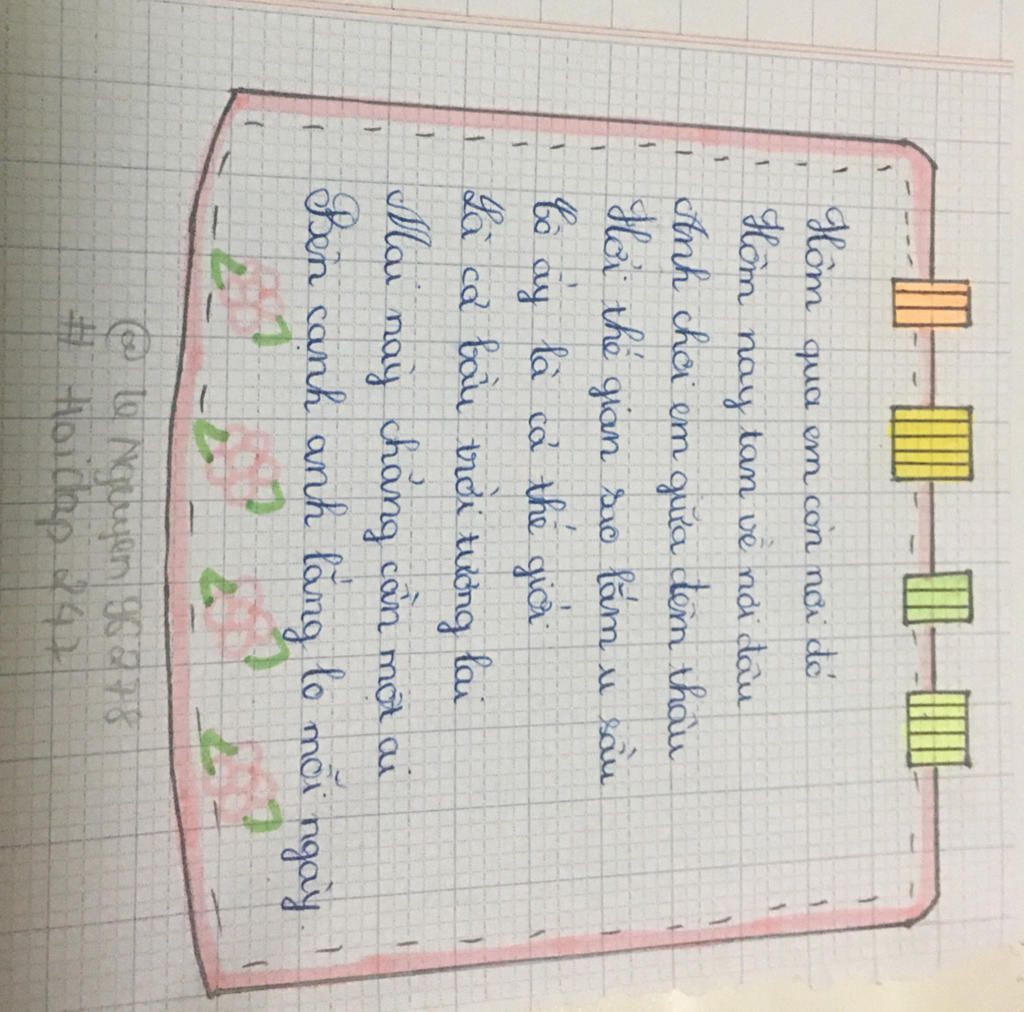 Hôm qua em còn nơi đó
Hôm nay tan về nơi đâu
Anh chơi em giữa đêm thâu
Hỏi thế gian sao lắm u sầu
Cô ấy là cả thế giới
Là cả bầu trời tương lai
Mai này chẳng cần một ai
Bên cạnh anh lắng lo mỗi ngày
@ le Nguyen 98278
# Hoidap 247